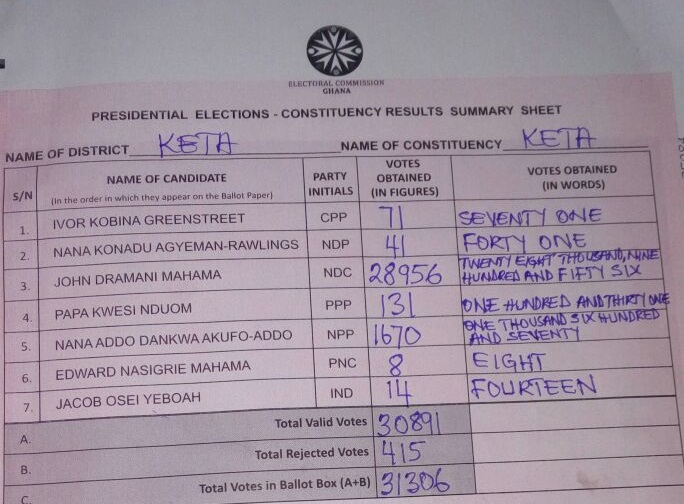 ELECTORAL COMMISSION
GHANA
PRESIDENTIAL ELECTIONS - CONSTITUENCY RESULTS SUMMARY SHEET
NAME OF DISTRICT KETA NAME OF CONSTITUENCY KETA
S/N NAME OF CANDIDATE (In the order in which they appear on the Ballot Paper) PARTY INITIALS VOTES OBTAINED (IN FIGURES) VOTES OBTAINED (IN WORDS)
1. IVOR KOBINA GREENSTREET CPP 71 SEVENTY ONE
2. NANA KONADU AGYEMAN-RAWLINGS NDP 41 FORTY ONE
3. JOHN DRAMANI MAHAMA NDC 28956 TWENTY EIGHT THOUSAND, NINE HUNDRED AND FIFTY SIX
4. PAPA KWESI NDUOM PPP 131 ONE HUNDRED AND THIRTY ONE
5. NANA ADDO DANKWA AKUFO-ADDO NPP 1670 ONE THOUSAND SIX HUNDRED AND SEVENTY
6. EDWARD NASIGRIE MAHAMA PNC 8 EIGHT
7. JACOB OSEI YEBOAH IND 14 FOURTEEN
A. Total Valid Votes 30891
B. Total Rejected Votes 415
C. Total Votes in Ballot Box (A+B) 31306